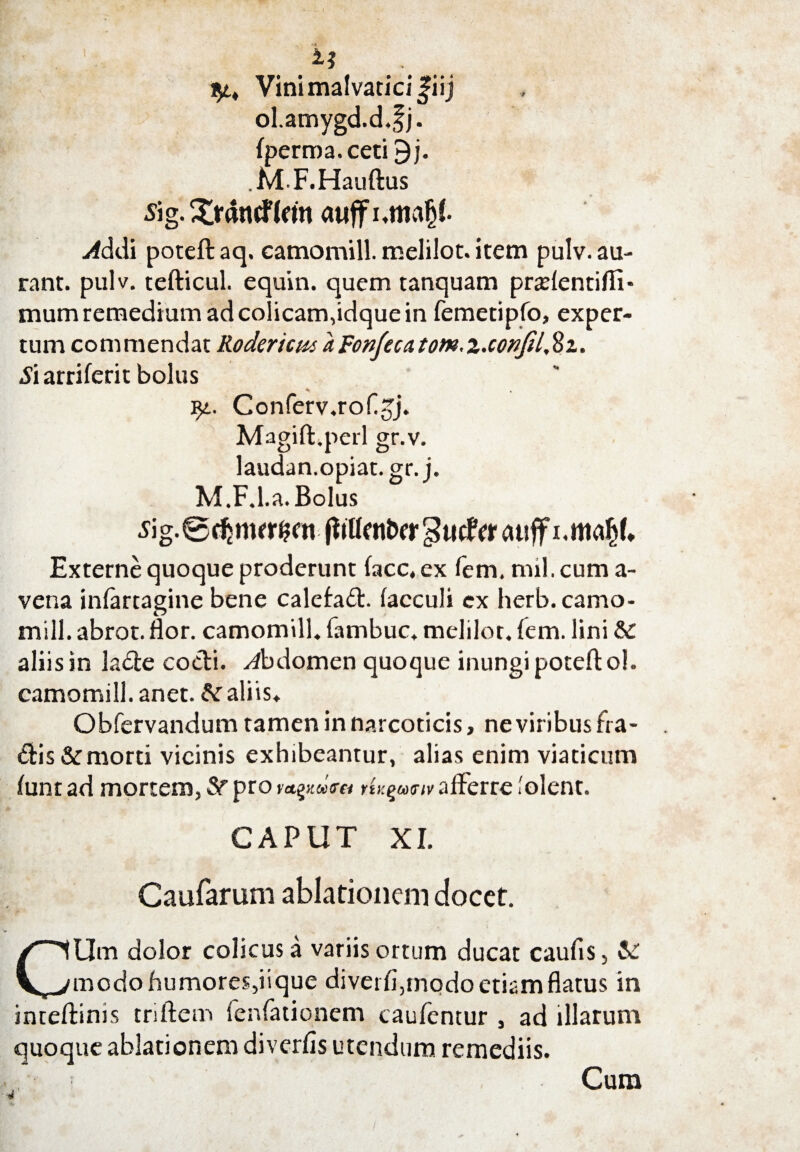 23
℞. Vini malvatici ℥iij
ol.amygd.d.℥j.
ſperma.ceti ℈j.
.M.F.Hauſtus
Sig. Tråncklein auff 1.mahl.
Addi poteſt aq. camomill. melilot. item pulv. au-
rant. pulv. teſticul. equin. quem tanquam præſentiſſi-
mum remedium ad colicam,idque in ſemetipſo, exper-
tum commendat Rodericus à Fonſeca tom.2.conſil.82.
Si arriſerit bolus
℞. Conſerv.roſ.ʒj.
Magiſt.perl gr.v.
laudan.opiat. gr. j.
M.F.l.a. Bolus
Sig. Schmertzen ſtillender Zucker auff 1.mahl.
Externè quoque proderunt ſacc. ex ſem. mil. cum a-
vena in ſartagine bene calefact. ſacculi ex herb. camo-
mill. abrot. flor. camomill. ſambuc. melilot. ſem. lini &
aliis in lacte cocti. Abdomen quoque inungi poteſt ol.
camomill. anet. & aliis.
Obſervandum tamen in narcoticis, ne viribus fra-
ctis & morti vicinis exhibeantur, alias enim viaticum
ſunt ad mortem, & pro ναρκώσει νέκρωσιν afferre ſolent.
CAPUT XI.
Cauſarum ablationem docet.
CUm dolor colicus à variis ortum ducat cauſis, &
modo humores,iique diverſi,modo etiam flatus in
inteſtinis triſtem ſenſationem cauſentur , ad illarum
quoque ablationem diverſis utendum remediis.
Cum